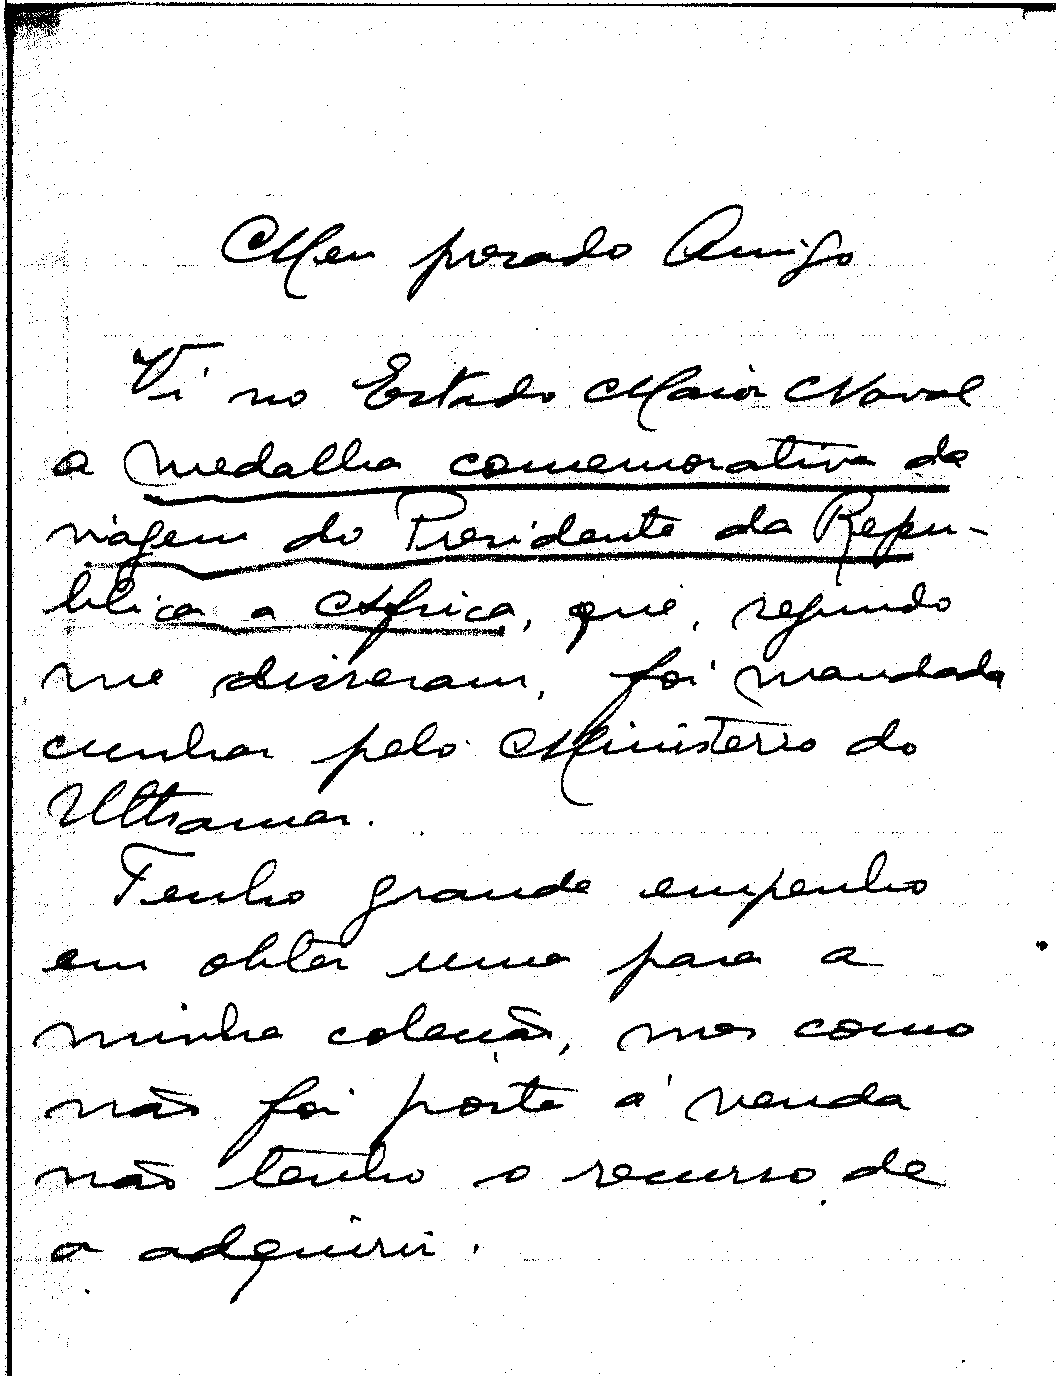 Meu prezado Amigo
Vi no Estado Maior Naval
a medalha comemorativa da
viagem do Presidente da Repu-
blica a Africa, que, segundo
me disseram, foi mandada
cunhar pelo Ministerio do
Ultramar.
Tenho grande empenho
em obter uma para a
minha coleção, mas como
não foi posta á venda
não tenho o recurso de
a adquirir.